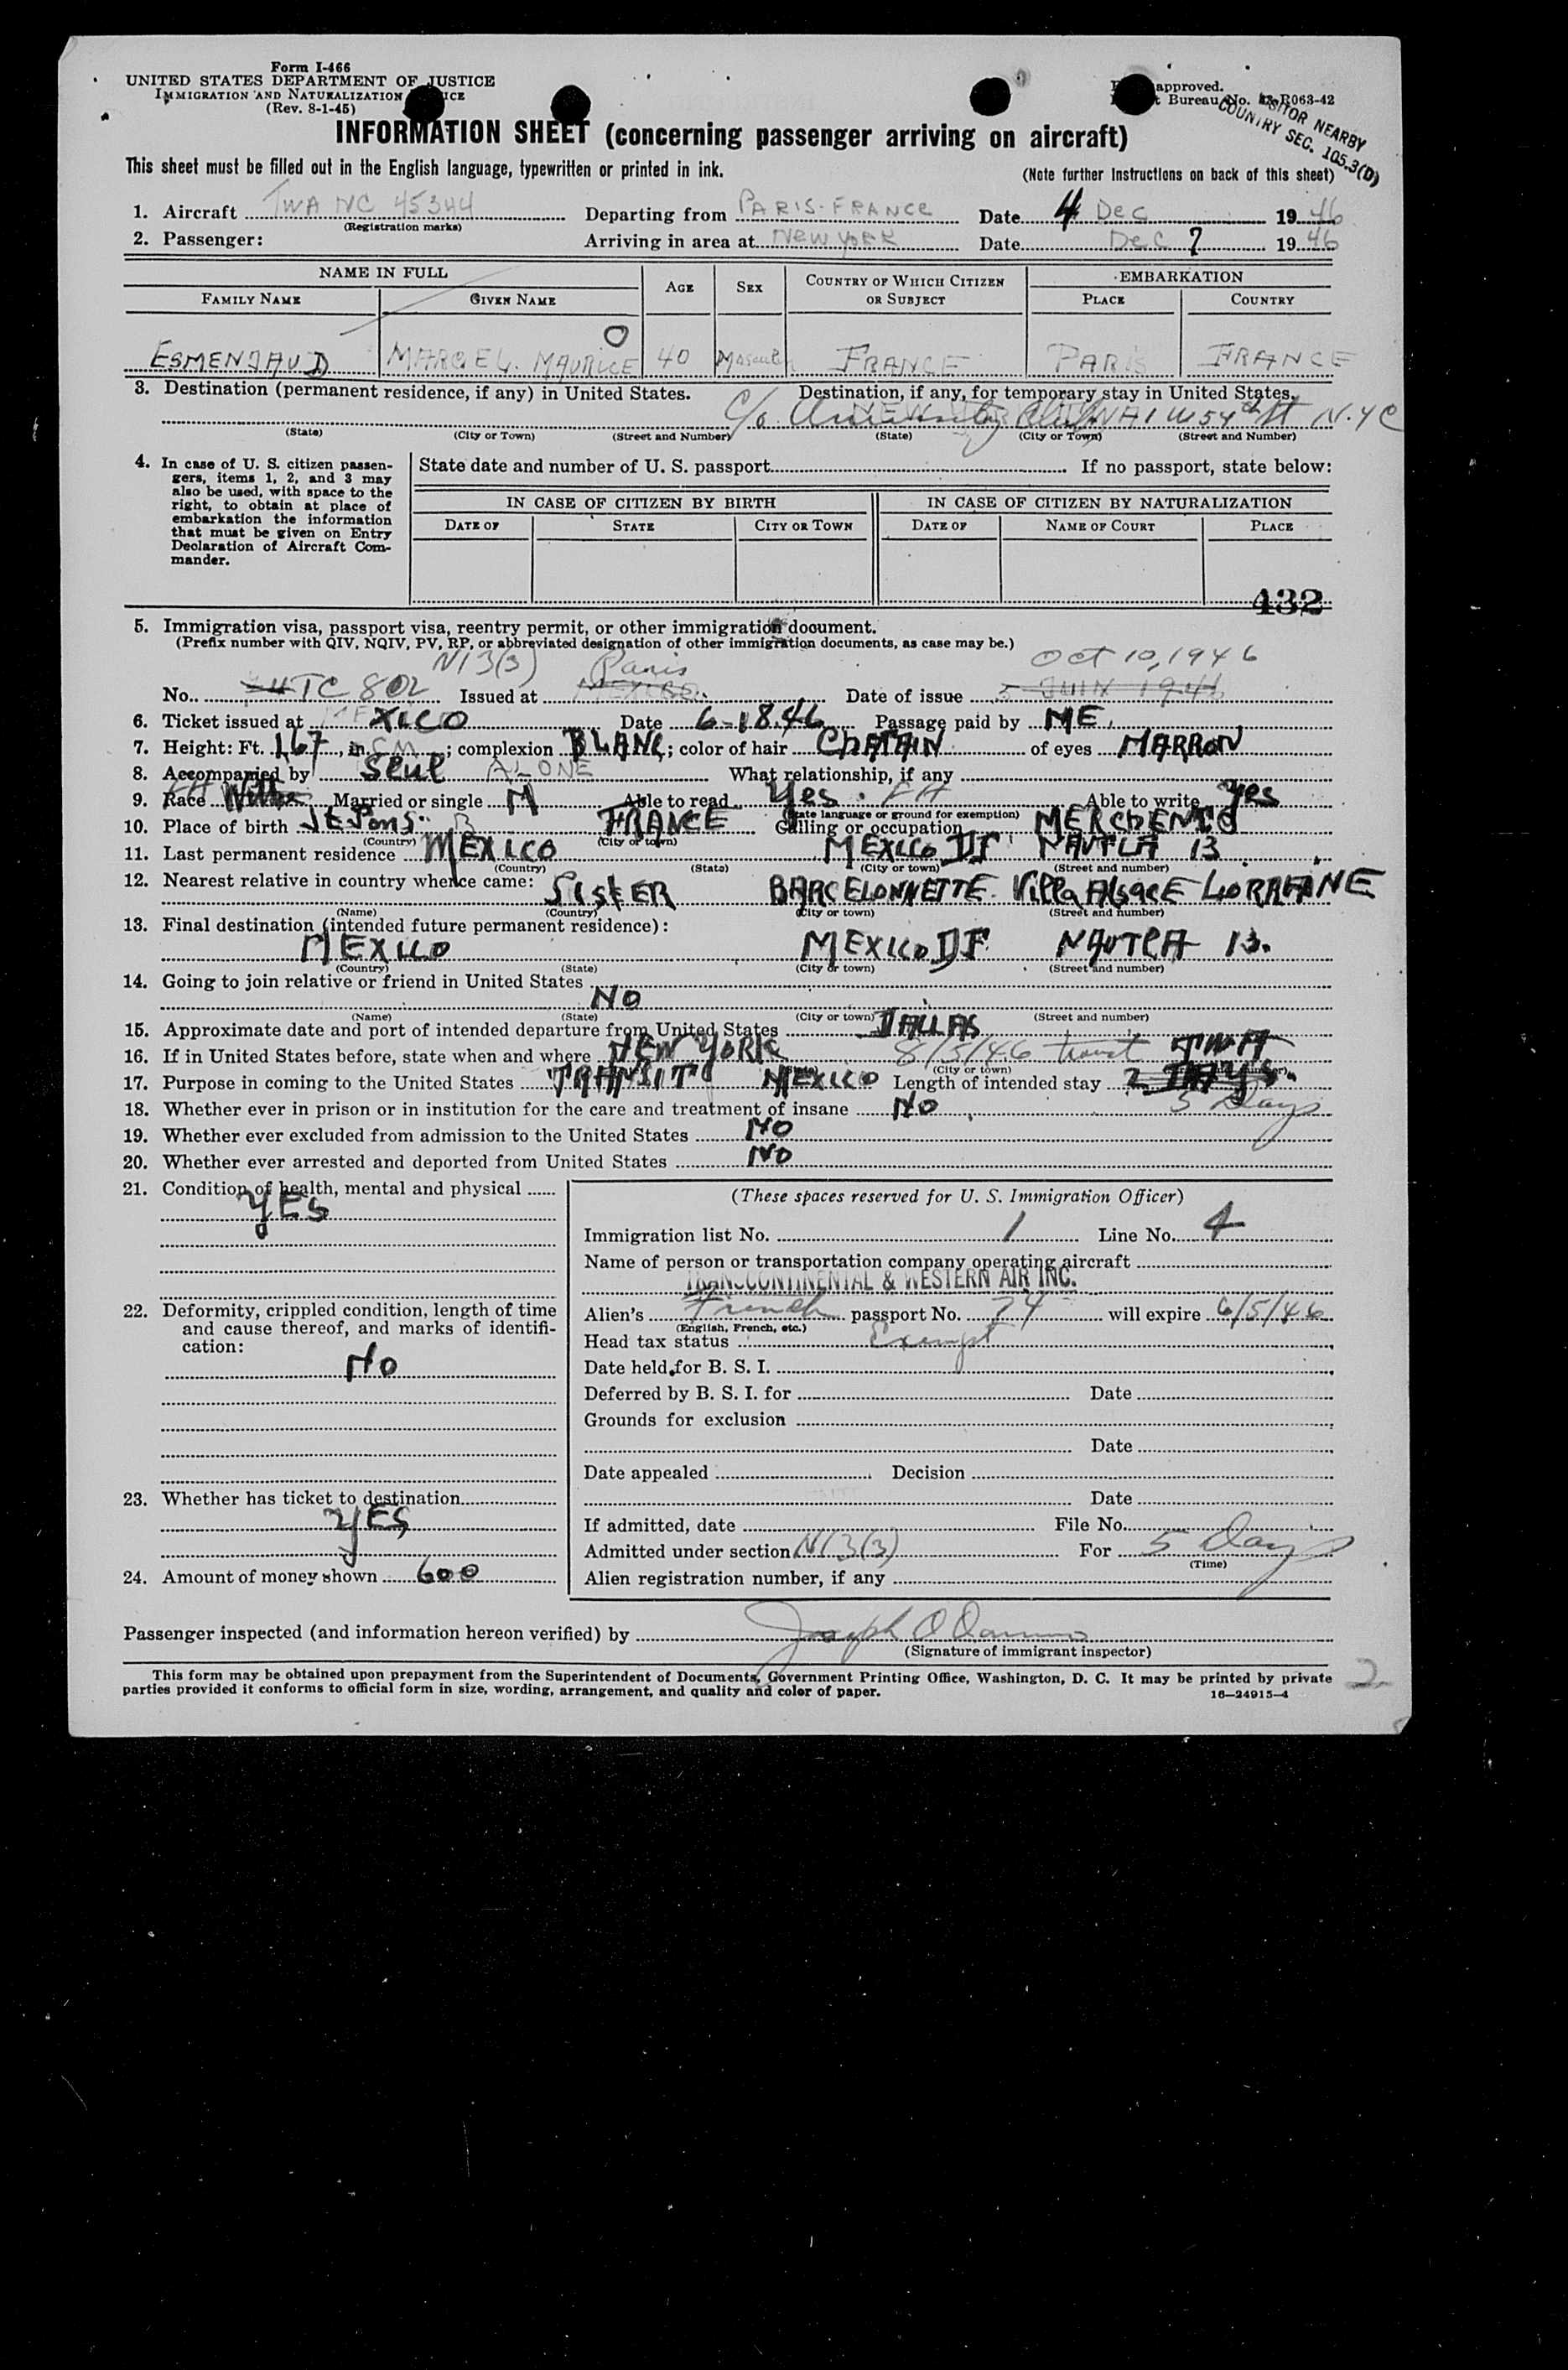 Form I-466
UNITED STATES DEPARTMENT OF JUSTICE
IMMIGRATION AND NATURALIZATION
(Rev. 8-1-45)
approved.
Bureau No. 43-R063-42
VISITOR NEARBY
COUNTRY SEC. 105.3(D)
INFORMATION SHEET (concerning passenger arriving on aircraft)
This sheet must be filled out in the English language, typewritten or printed in ink.
(Note further instructions on back of this sheet)
1. Aircraft TWA NC 45344 Departing from PARIS-FRANCE Date 4 Dec 1946
(Registration marks)
2. Passenger: Arriving in area at NEW YORK Date Dec 7 1946
NAME IN FULL AGE SEX COUNTRY OF WHICH CITIZEN OR SUBJECT EMBARKATION
FAMILY NAME GIVEN NAME PLACE COUNTRY
O
ESMENJAUD MARCEL MAURICE 40 FRANCE PARIS FRANCE
3. Destination (permanent residence, if any) in United States. Destination, if any, for temporary stay in United States.
c/o Club 1 W 54th St N.Y C
(State) (City or Town) (Street and Number) (State) (City or Town) (Street and Number)
4. In case of U. S. citizen passengers, items 1, 2, and 3 may also be used, with space to the right, to obtain at place of embarkation the information that must be given on Entry Declaration of Aircraft Commander.
State date and number of U. S. passport If no passport, state below:
IN CASE OF CITIZEN BY BIRTH IN CASE OF CITIZEN BY NATURALIZATION
DATE OF STATE CITY OR TOWN DATE OF NAME OF COURT PLACE
432
5. Immigration visa, passport visa, reentry permit, or other immigration document.
(Prefix number with QIV, NQIV, PV, RP, or abbreviated designation of other immigration documents, as case may be.)
N13(3) Paris Oct 10, 1946
No. TC 802 Issued at Date of issue 5 JUIN 1946
6. Ticket issued at MEXICO Date 6-18.46 Passage paid by ME
7. Height: Ft. 1,67, in. CM; complexion BLANC; color of hair CHATAIN of eyes MARRON
8. Accompanied by Seul ALONE What relationship, if any
9. Race Married or single M Able to read Yes. FR Able to write Yes
(State language or ground for exemption)
10. Place of birth FRANCE Calling or occupation
(Country) (City or town)
11. Last permanent residence MEXICO MEXICO DF NAUTLA 13
(Country) (State) (City or town) (Street and number)
12. Nearest relative in country whence came: SISTER BARCELONNETTE Villa Alsace LORRAINE
(Name) (Country) (City or town) (Street and number)
13. Final destination (intended future permanent residence):
MEXICO MEXICO DF NAUTLA 13.
(Country) (State) (City or town) (Street and number)
14. Going to join relative or friend in United States
NO
(Name) (State) (City or town) (Street and number)
15. Approximate date and port of intended departure from United States DALLAS
16. If in United States before, state when and where NEW YORK 8/5/46 transit TWA
(City or town)
17. Purpose in coming to the United States TRANSITO MEXICO Length of intended stay 2 DAYS.
5 Days
18. Whether ever in prison or in institution for the care and treatment of insane NO
19. Whether ever excluded from admission to the United States NO
20. Whether ever arrested and deported from United States NO
21. Condition of health, mental and physical
YES
(These spaces reserved for U. S. Immigration Officer)
Immigration list No. 1 Line No. 4
Name of person or transportation company operating aircraft
TRANSCONTINENTAL & WESTERN AIR INC.
22. Deformity, crippled condition, length of time and cause thereof, and marks of identification:
NO
Alien's French passport No. 74 will expire 6/5/46
(English, French, etc.)
Head tax status Exempt
Date held for B. S. I.
Deferred by B. S. I. for Date
Grounds for exclusion
Date
Date appealed Decision
Date
23. Whether has ticket to destination
YES
If admitted, date File No.
Admitted under section N13(3) For 5 Days
(Time)
24. Amount of money shown 600
Alien registration number, if any
Passenger inspected (and information hereon verified) by Joseph
(Signature of immigrant inspector)
This form may be obtained upon prepayment from the Superintendent of Documents, Government Printing Office, Washington, D. C. It may be printed by private
parties provided it conforms to official form in size, wording, arrangement, and quality and color of paper.
16—24915-4
2